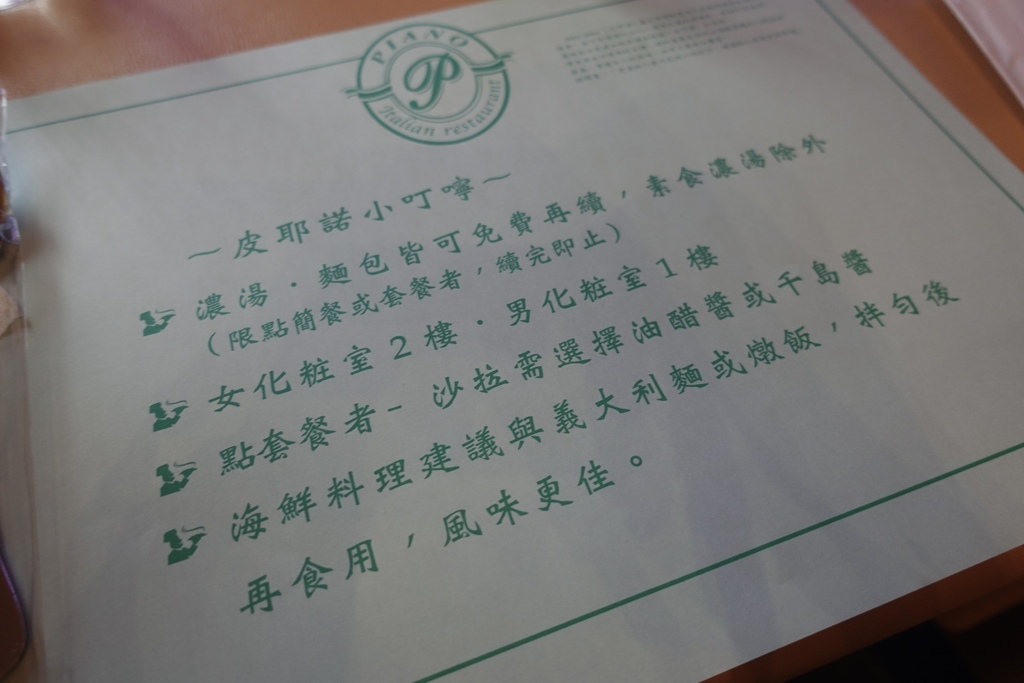 PIANO
P
Italian restaurant
~皮耶諾小叮嚀~
濃湯．麵包皆可免費再續，素食濃湯除外
（限點簡餐或套餐者，續完即止）
女化粧室2樓．男化粧室1樓
點套餐者- 沙拉需選擇油醋醬或千島醬
海鮮料理建議與義大利麵或燉飯，拌勻後
再食用，風味更佳。